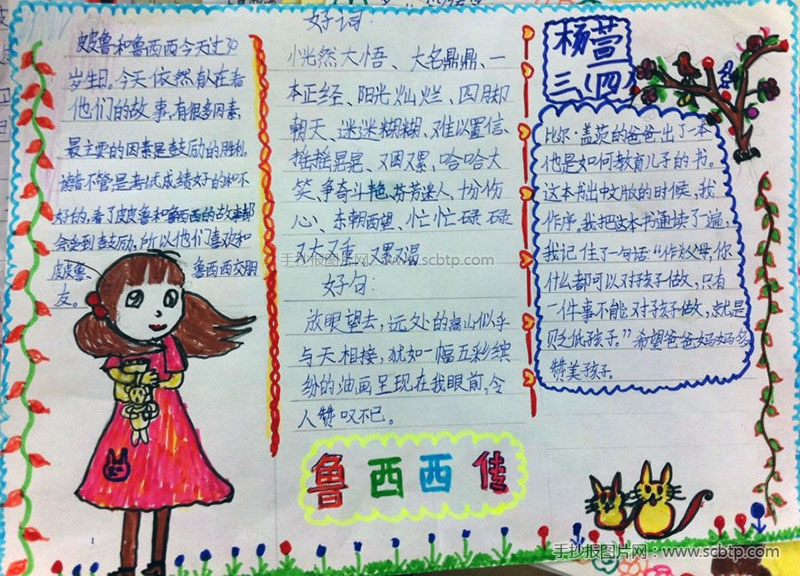 皮皮鲁和鲁西西今天过30
岁生日。今天依然献在着
他们的故事,有很多因素,
最主要的因素是鼓励的胜利,
读者不管是考试成绩好的和不
好的,看了皮皮鲁和鲁西西的故事都
会受到鼓励,所以他们喜欢和
皮皮鲁、鲁西西交朋
友。
好词:
恍然大悟、大名鼎鼎、一
本正经、阳光灿烂、四脚
朝天、迷迷糊糊、难以置信、
摇摇晃晃、又困又累、哈哈大
笑、争奇斗艳、芬芳迷人、十份伤
心、东朝西望、忙忙碌碌
又大又重、又累又渴
好句:
放眼望去,远处的高山似乎
与天相接,犹如一幅五彩缤
纷的油画呈现在我眼前,令
人赞叹不已。
鲁西西传
杨萱
三(四)
比尔·盖茨的爸爸出了一本
他是如何教育儿子的书。
这本书出中文版的时候,我
作序。我把这本书通读了遍,
我记住了一句话:“作为父母,你
什么都可以对孩子做,只有
一件事不能对孩子做,就是
贬低孩子。”希望爸爸妈妈多
赞美孩子。
手抄报图片网:www.scbtp.com
手抄报图片网:www.scbtp.com